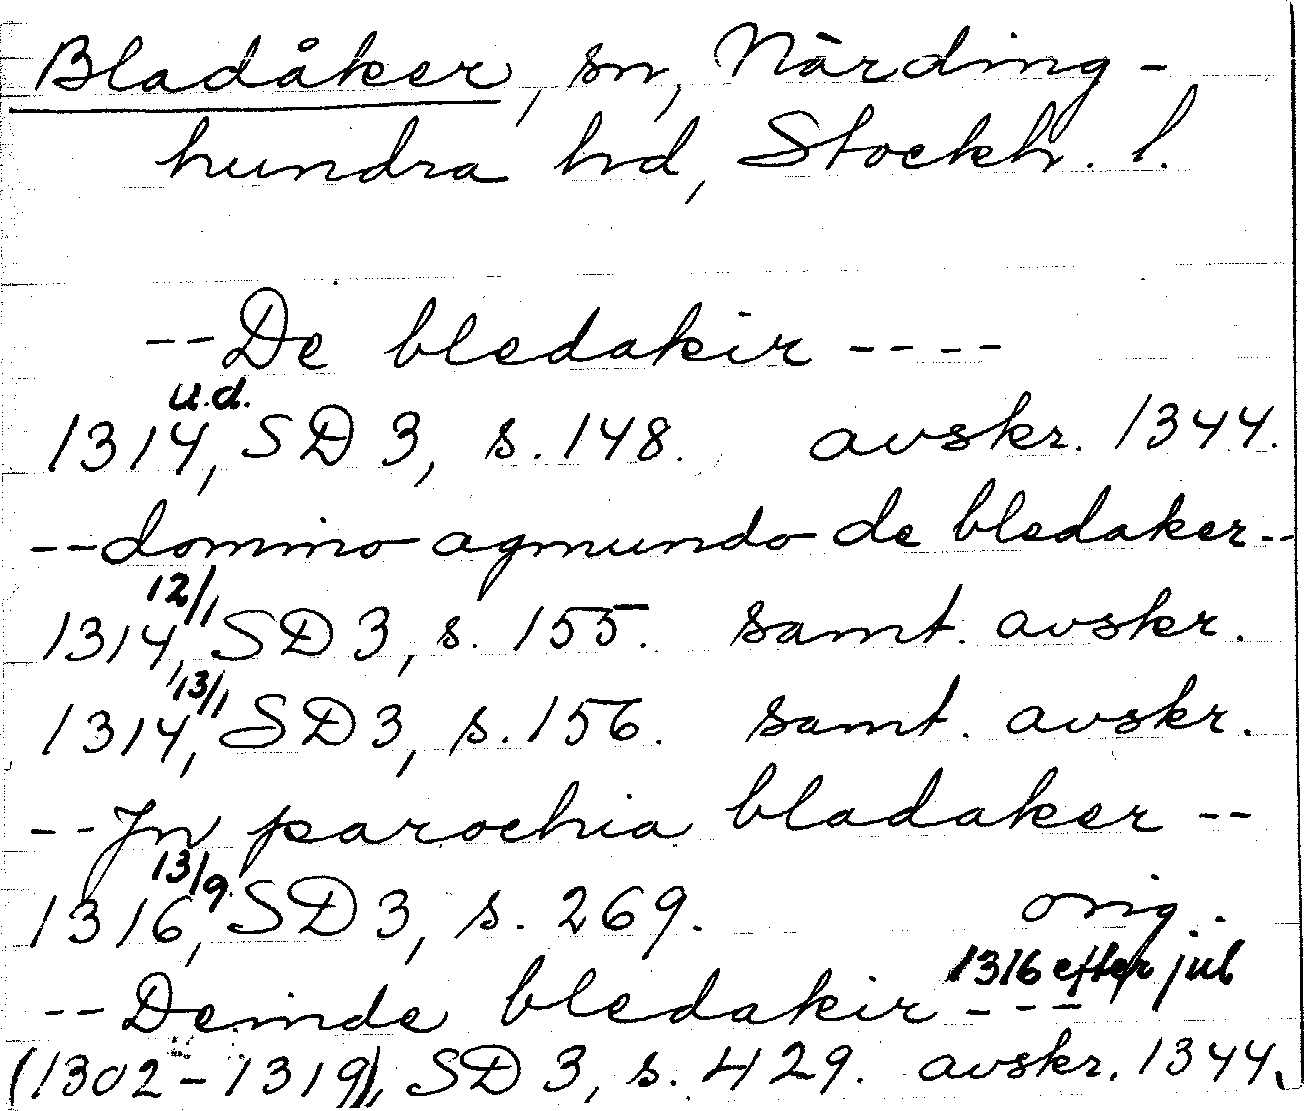 Bladåker, sn, Närding-
hundra hd, Stockh. l.
--De bledakir----
u.d.
1314, SD 3, s. 148. avskr. 1344.
--domino agmundo de bledaker--
12/1
1314, SD 3, s. 155. samt. avskr.
13/1
1314, SD 3, s. 156. samt. avskr.
--Jn parochia bladaker--
13/9
1316, SD 3, s. 269. orig.
1316 efter jul
--Deinde bledakir---
(1302-1319), SD 3, s. 429. avskr. 1344.